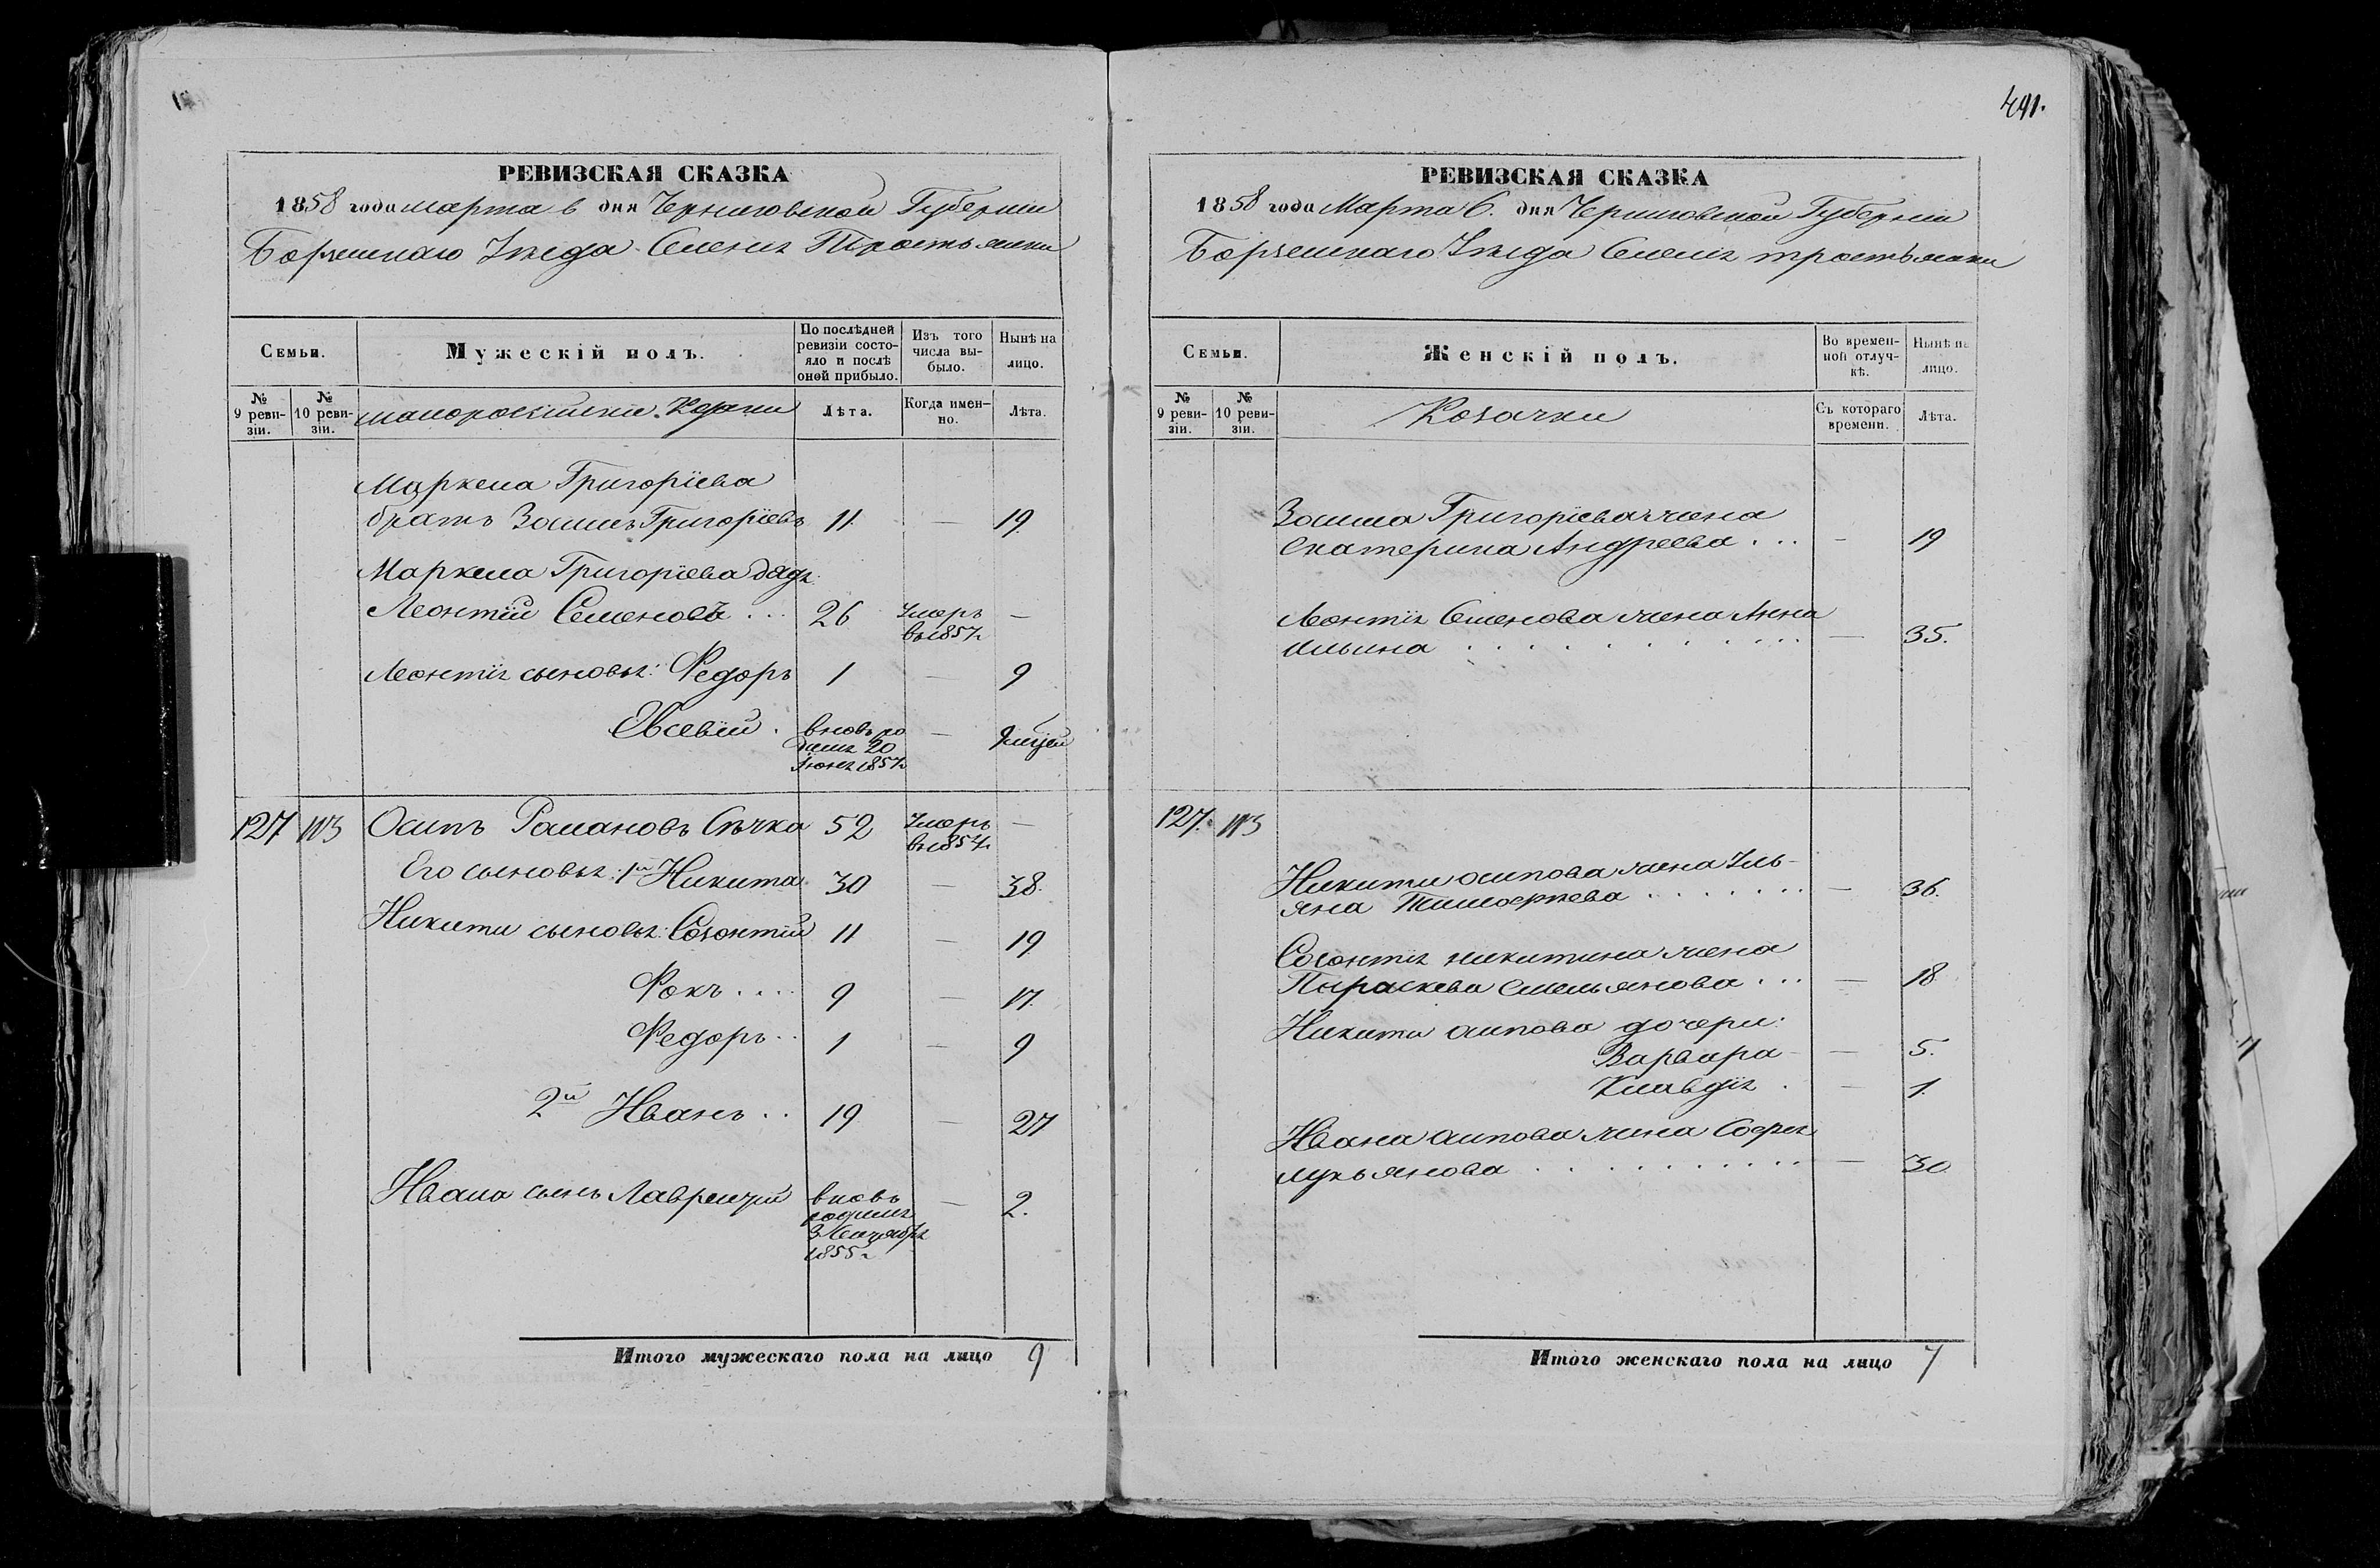 РЕВИЗСКАЯ СКАЗКА
1858 года марта 6 дня Черниговской Губернии
Борзенскаго Уезда Селенія Тростьянки
Семьи.
Мужескій полъ.
По послѣдней ревизіи состояло и послѣ оной прибыло.
Изъ того числа выбыло.
Нынѣ на лицо.
№ 9 ревизіи.
№ 10 ревизіи.
малоросійскіи Козаки
Лѣта.
Когда именно.
Лѣта.
Маркела Григоріева
братъ Григоріевъ 11 — 19
Маркела Григоріева дядя
Леонтій Семеновъ ... 26 Умеръ в 1857г —
Леонтія сыновья: Федоръ 1 — 9
Евсевій . вновь родился 20 Іюня 1857г —
127 113 Осипъ Рамановъ Сѣчка 52 Умеръ в 1854г —
Его сыновья: 1й Никита 30 — 38
Никити сыновья: Созонтій 11 — 19
Фокъ .... 9 — 17
Федоръ .. 1 — 9
2й Иванъ .. 19 — 27
Ивана сынъ Лаврентій вновь родился 3 Сентября 1855г — 2.
Итого мужескаго пола на лицо 9
491.
РЕВИЗСКАЯ СКАЗКА
1858 года Марта 6. дня Черниговской Губерніи
Борзенскаго Уезда Селенія тростьянки
Семьи.
Женскій полъ.
Во временной отлучкѣ.
Нынѣ на лицо.
№ 9 ревизіи.
№ 10 ревизіи.
Козачки
Съ котораго времени.
Лѣта.
Григоріева жена
Екатерина Андреева ... — 19
Леонтія Семенова жена Анна
Ильина — 35.
127. 113
Никити осипова жена Уль-
яна Тимофеева — 36.
Созонтія никитина жена
Параскева Емельянова ... — 18
Никити осипова дочери:
Варвара — 5.
Клавдія . — 1.
Ивана осипова жена Софія
лукьянова — 30
Итого женскаго пола на лицо 7